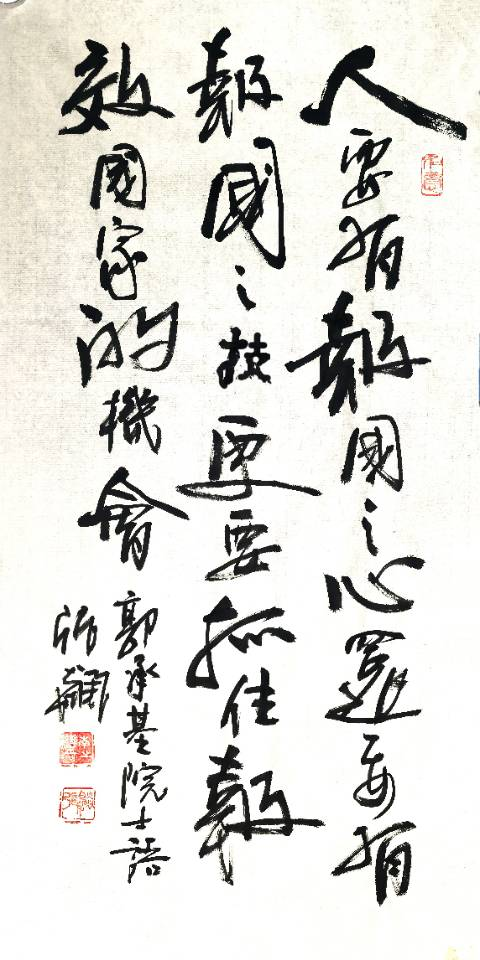 人要有報國之心還要有
報國之技更要抓住報
效國家的機會
郭承基院士語